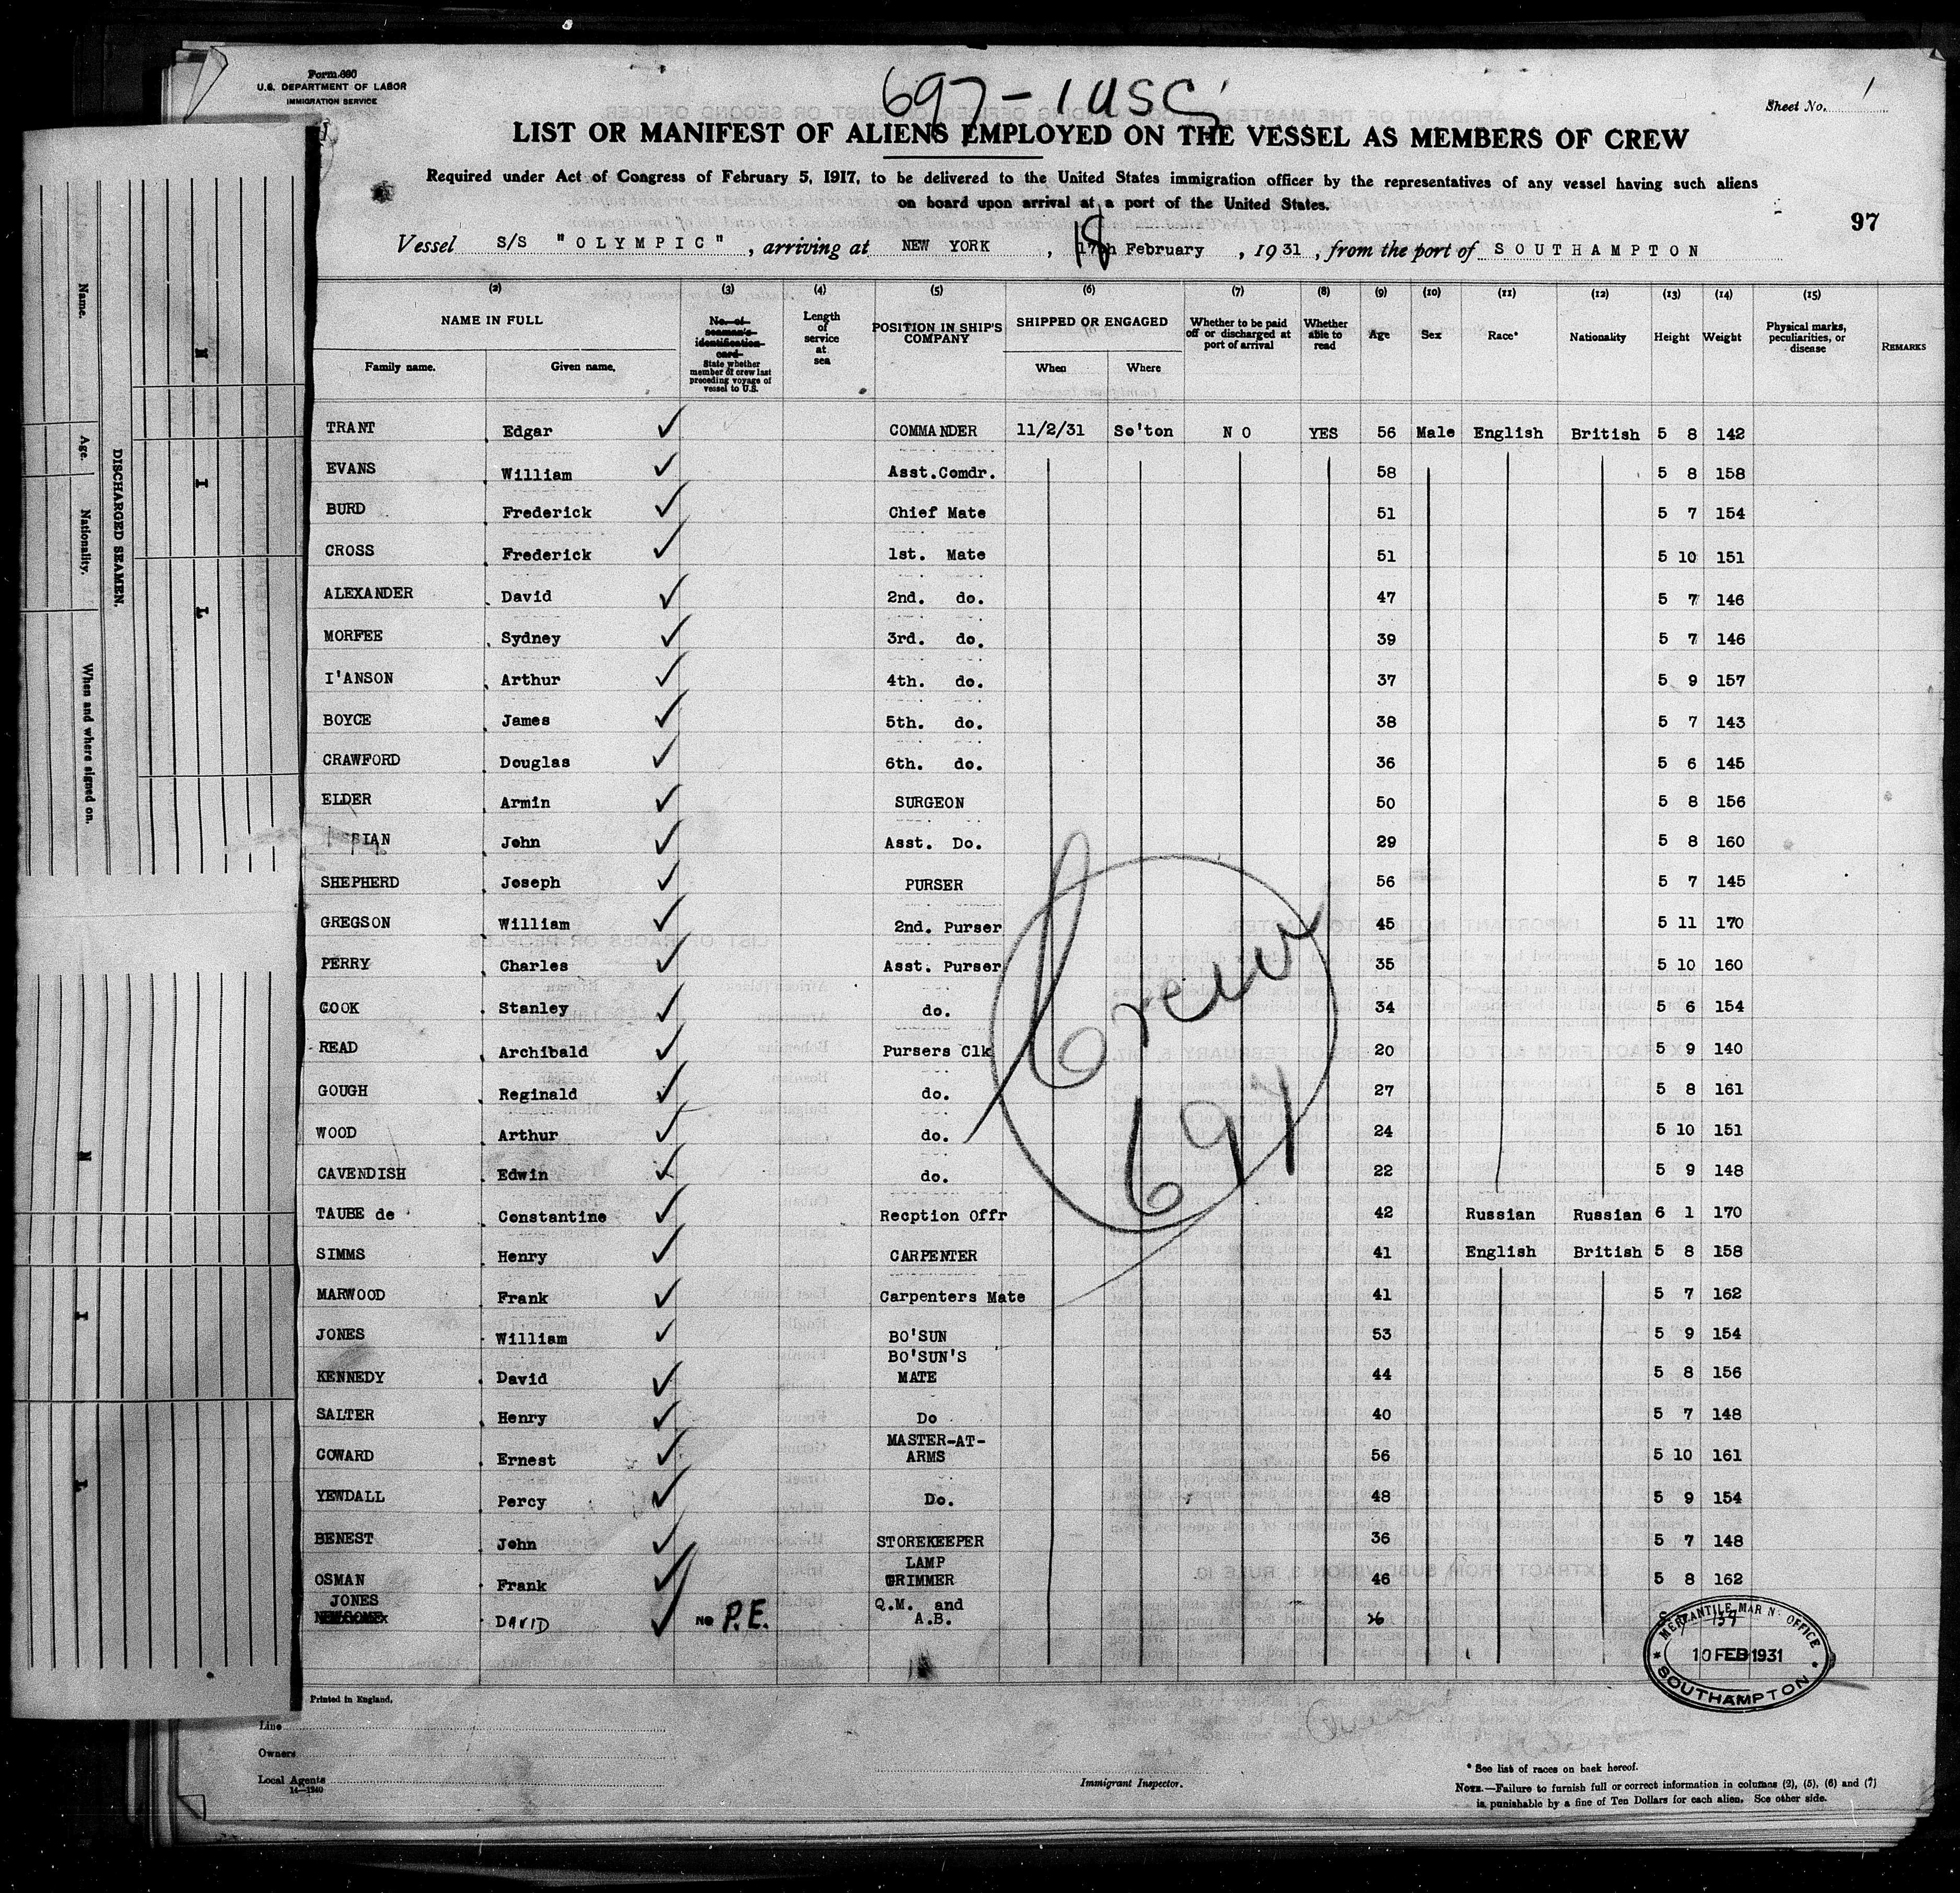 Form 680
U.S. DEPARTMENT OF LABOR
IMMIGRATION SERVICE
697-1 USC
Sheet No. 1
LIST OR MANIFEST OF ALIENS EMPLOYED ON THE VESSEL AS MEMBERS OF CREW
Required under Act of Congress of February 5, 1917, to be delivered to the United States immigration officer by the representatives of any vessel having such aliens
on board upon arrival at a port of the United States.
97
Vessel S/S "OLYMPIC", arriving at NEW YORK, 18 17th February, 1931, from the port of SOUTHAMPTON
(2) (3) (4) (5) (6) (7) (8) (9) (10) (11) (12) (13) (14) (15)
NAME IN FULL
Family name. Given name.
No. of seaman's identification card
State whether member of crew last preceding voyage of vessel to U.S.
Length of service at sea
POSITION IN SHIP'S COMPANY
SHIPPED OR ENGAGED
When Where
Whether to be paid off or discharged at port of arrival
Whether able to read
Age Sex Race* Nationality Height Weight
Physical marks, peculiarities, or disease
REMARKS
TRANT Edgar ✓ COMMANDER 11/2/31 So'ton NO YES 56 Male English British 5 8 142
EVANS William ✓ Asst.Comdr. 58 5 8 158
BURD Frederick ✓ Chief Mate 51 5 7 154
CROSS Frederick ✓ 1st. Mate 51 5 10 151
ALEXANDER David ✓ 2nd. do. 47 5 7 146
MORFEE Sydney ✓ 3rd. do. 39 5 7 146
I'ANSON Arthur ✓ 4th. do. 37 5 9 157
BOYCE James ✓ 5th. do. 38 5 7 143
CRAWFORD Douglas ✓ 6th. do. 36 5 6 145
ELDER Armin ✓ SURGEON 50 5 8 156
John ✓ Asst. Do. 29 5 8 160
SHEPHERD Joseph ✓ PURSER 56 5 7 145
GREGSON William ✓ 2nd. Purser 45 5 11 170
PERRY Charles ✓ Asst. Purser 35 5 10 160
COOK Stanley ✓ do. 34 5 6 154
READ Archibald ✓ Pursers Clk 20 5 9 140
GOUGH Reginald ✓ do. 27 5 8 161
WOOD Arthur ✓ do. 24 5 10 151
CAVENDISH Edwin ✓ do. 22 5 9 148
TAUBE de Constantine ✓ Recption Offr 42 Russian Russian 6 1 170
SIMMS Henry ✓ CARPENTER 41 English British 5 8 158
MARWOOD Frank ✓ Carpenters Mate 41 5 7 162
JONES William ✓ BO'SUN 53 5 9 154
KENNEDY David ✓ BO'SUN'S MATE 44 5 8 156
SALTER Henry ✓ Do 40 5 7 148
COWARD Ernest ✓ MASTER-AT-ARMS 56 5 10 161
YEWDALL Percy ✓ Do. 48 5 9 154
BENEST John ✓ STOREKEEPER 36 5 7 148
OSMAN Frank ✓ LAMP TRIMMER 46 5 8 162
JONES DAVID ✓ No P.E. Q.M. and A.B.
Crew
697
MERCANTILE MAR N. OFFICE
10 FEB 1931
SOUTHAMPTON
Printed in England.
Line
Owners
Local Agents
14—1240
Immigrant Inspector.
* See list of races on back hereof.
NOTE.—Failure to furnish full or correct information in columns (2), (5), (6) and (7)
is punishable by a fine of Ten Dollars for each alien. See other side.
DISCHARGED SEAMEN.
Name.
Age.
Nationality.
When and where signed on.
N I L
N I L